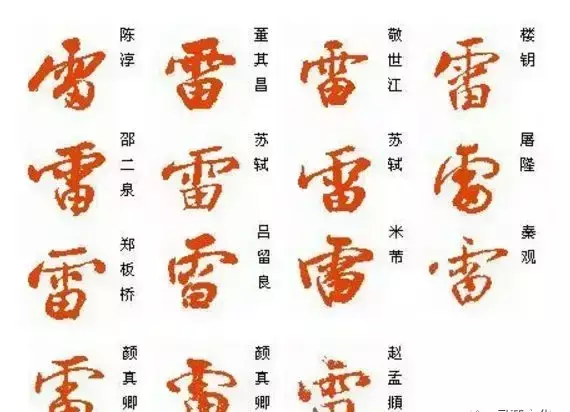 雷 陈淳
雷 董其昌
雷 敬世江
雷 楼钥
雷 邵二泉
雷 苏轼
雷 苏轼
雷 屠隆
雷 郑板桥
雷 吕留良
雷 米芾
雷 秦观
雷 颜真卿
雷 颜真卿
雷 赵孟頫